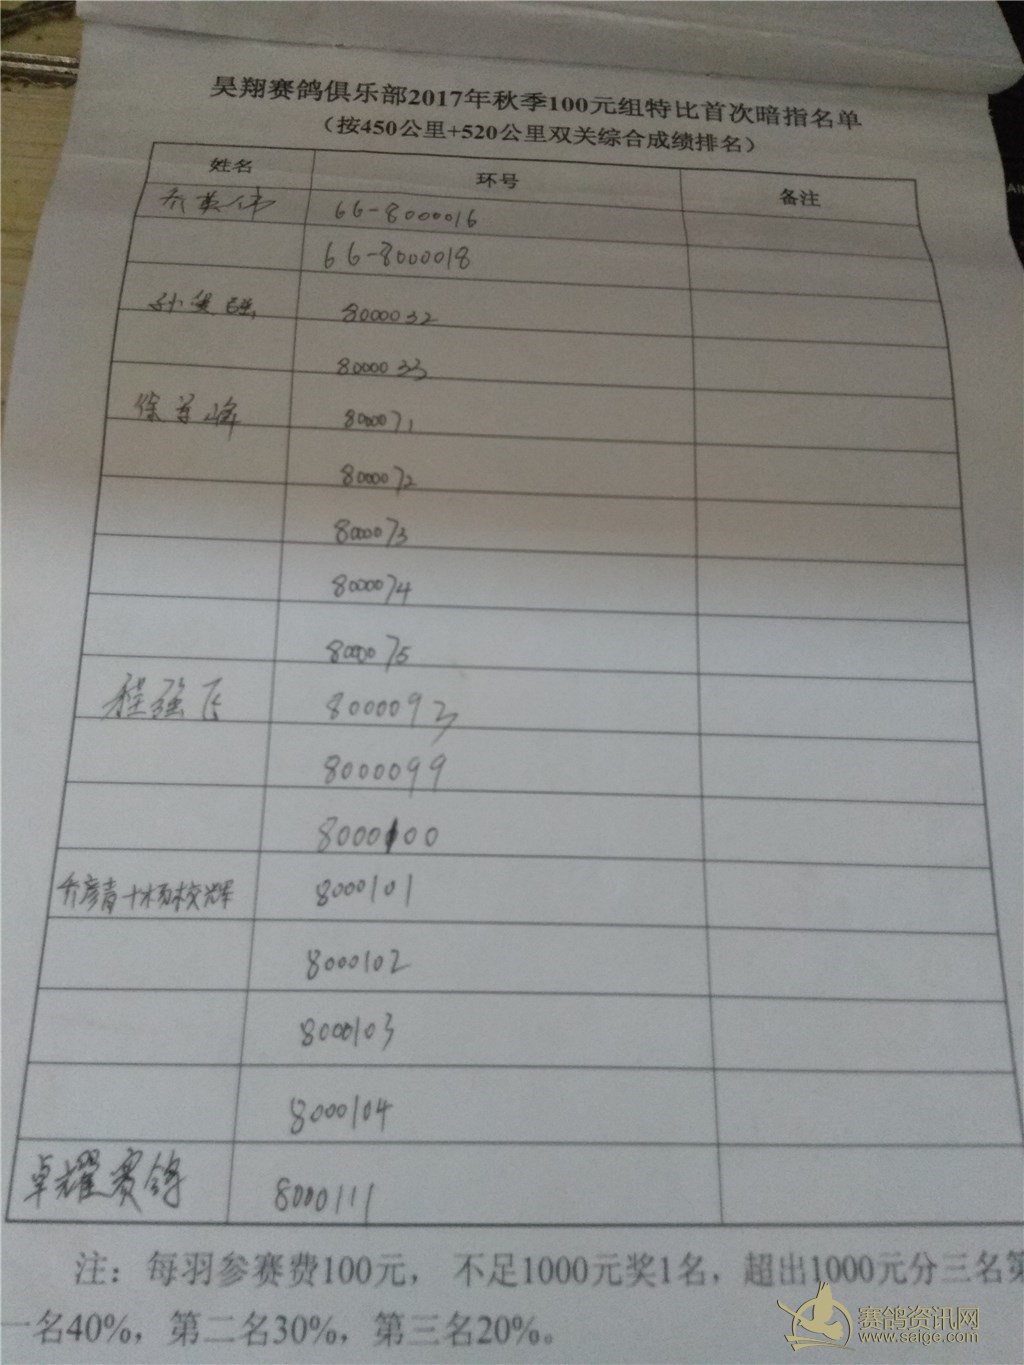 昊翔赛鸽俱乐部2017年秋季100元组特比首次暗指名单
（按450公里+520公里双关综合成绩排名）
姓名 环号 备注
乔英伟 66-8000016
66-8000018
孙 8000032
8000033
徐 峰 8000071
8000072
8000073
8000074
8000075
程强飞 8000093
8000099
8000100
乔彦青+杨校辉 8000101
8000102
8000103
8000104
卓耀赛鸽 8000111
注：每羽参赛费100元， 不足1000元奖1名，超出1000元分三名第
一名40%，第二名30%，第三名20%。
赛鸽资讯网
www.saige.com